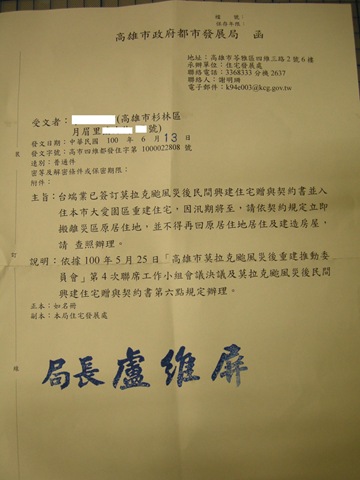 檔　號：
保存年限：
高雄市政府都市發展局　函
地址：高雄市苓雅區四維三路2號6樓
承辦單位：住宅發展處
聯絡電話：3368333 分機2637
聯絡人：謝明
電子郵件：k94e003@kcg.gov.tw
受文者：（高雄市杉林區
月眉里 號）
發文日期：中華民國 100 年 6 月 13 日
發文字號：高市四維都發住字第 1000022808 號
速別：普通件
密等及解密條件或保密期限：
附件：
主旨：台端業已簽訂莫拉克颱風災後民間興建住宅贈與契約書並入
住本市大愛園區重建住宅，因汛期將至，請依契約規定立即
搬離災區原居住地，並不得再回原居住地居住及建造房屋，
請 查照辦理。
說明：依據100年5月25日「高雄市莫拉克颱風災後重建推動委
員會」第4次聯席工作小組會議決議及莫拉克颱風災後民間
興建住宅贈與契約書第六點規定辦理。
正本：如名冊
副本：本局住宅發展處
局長盧維屏